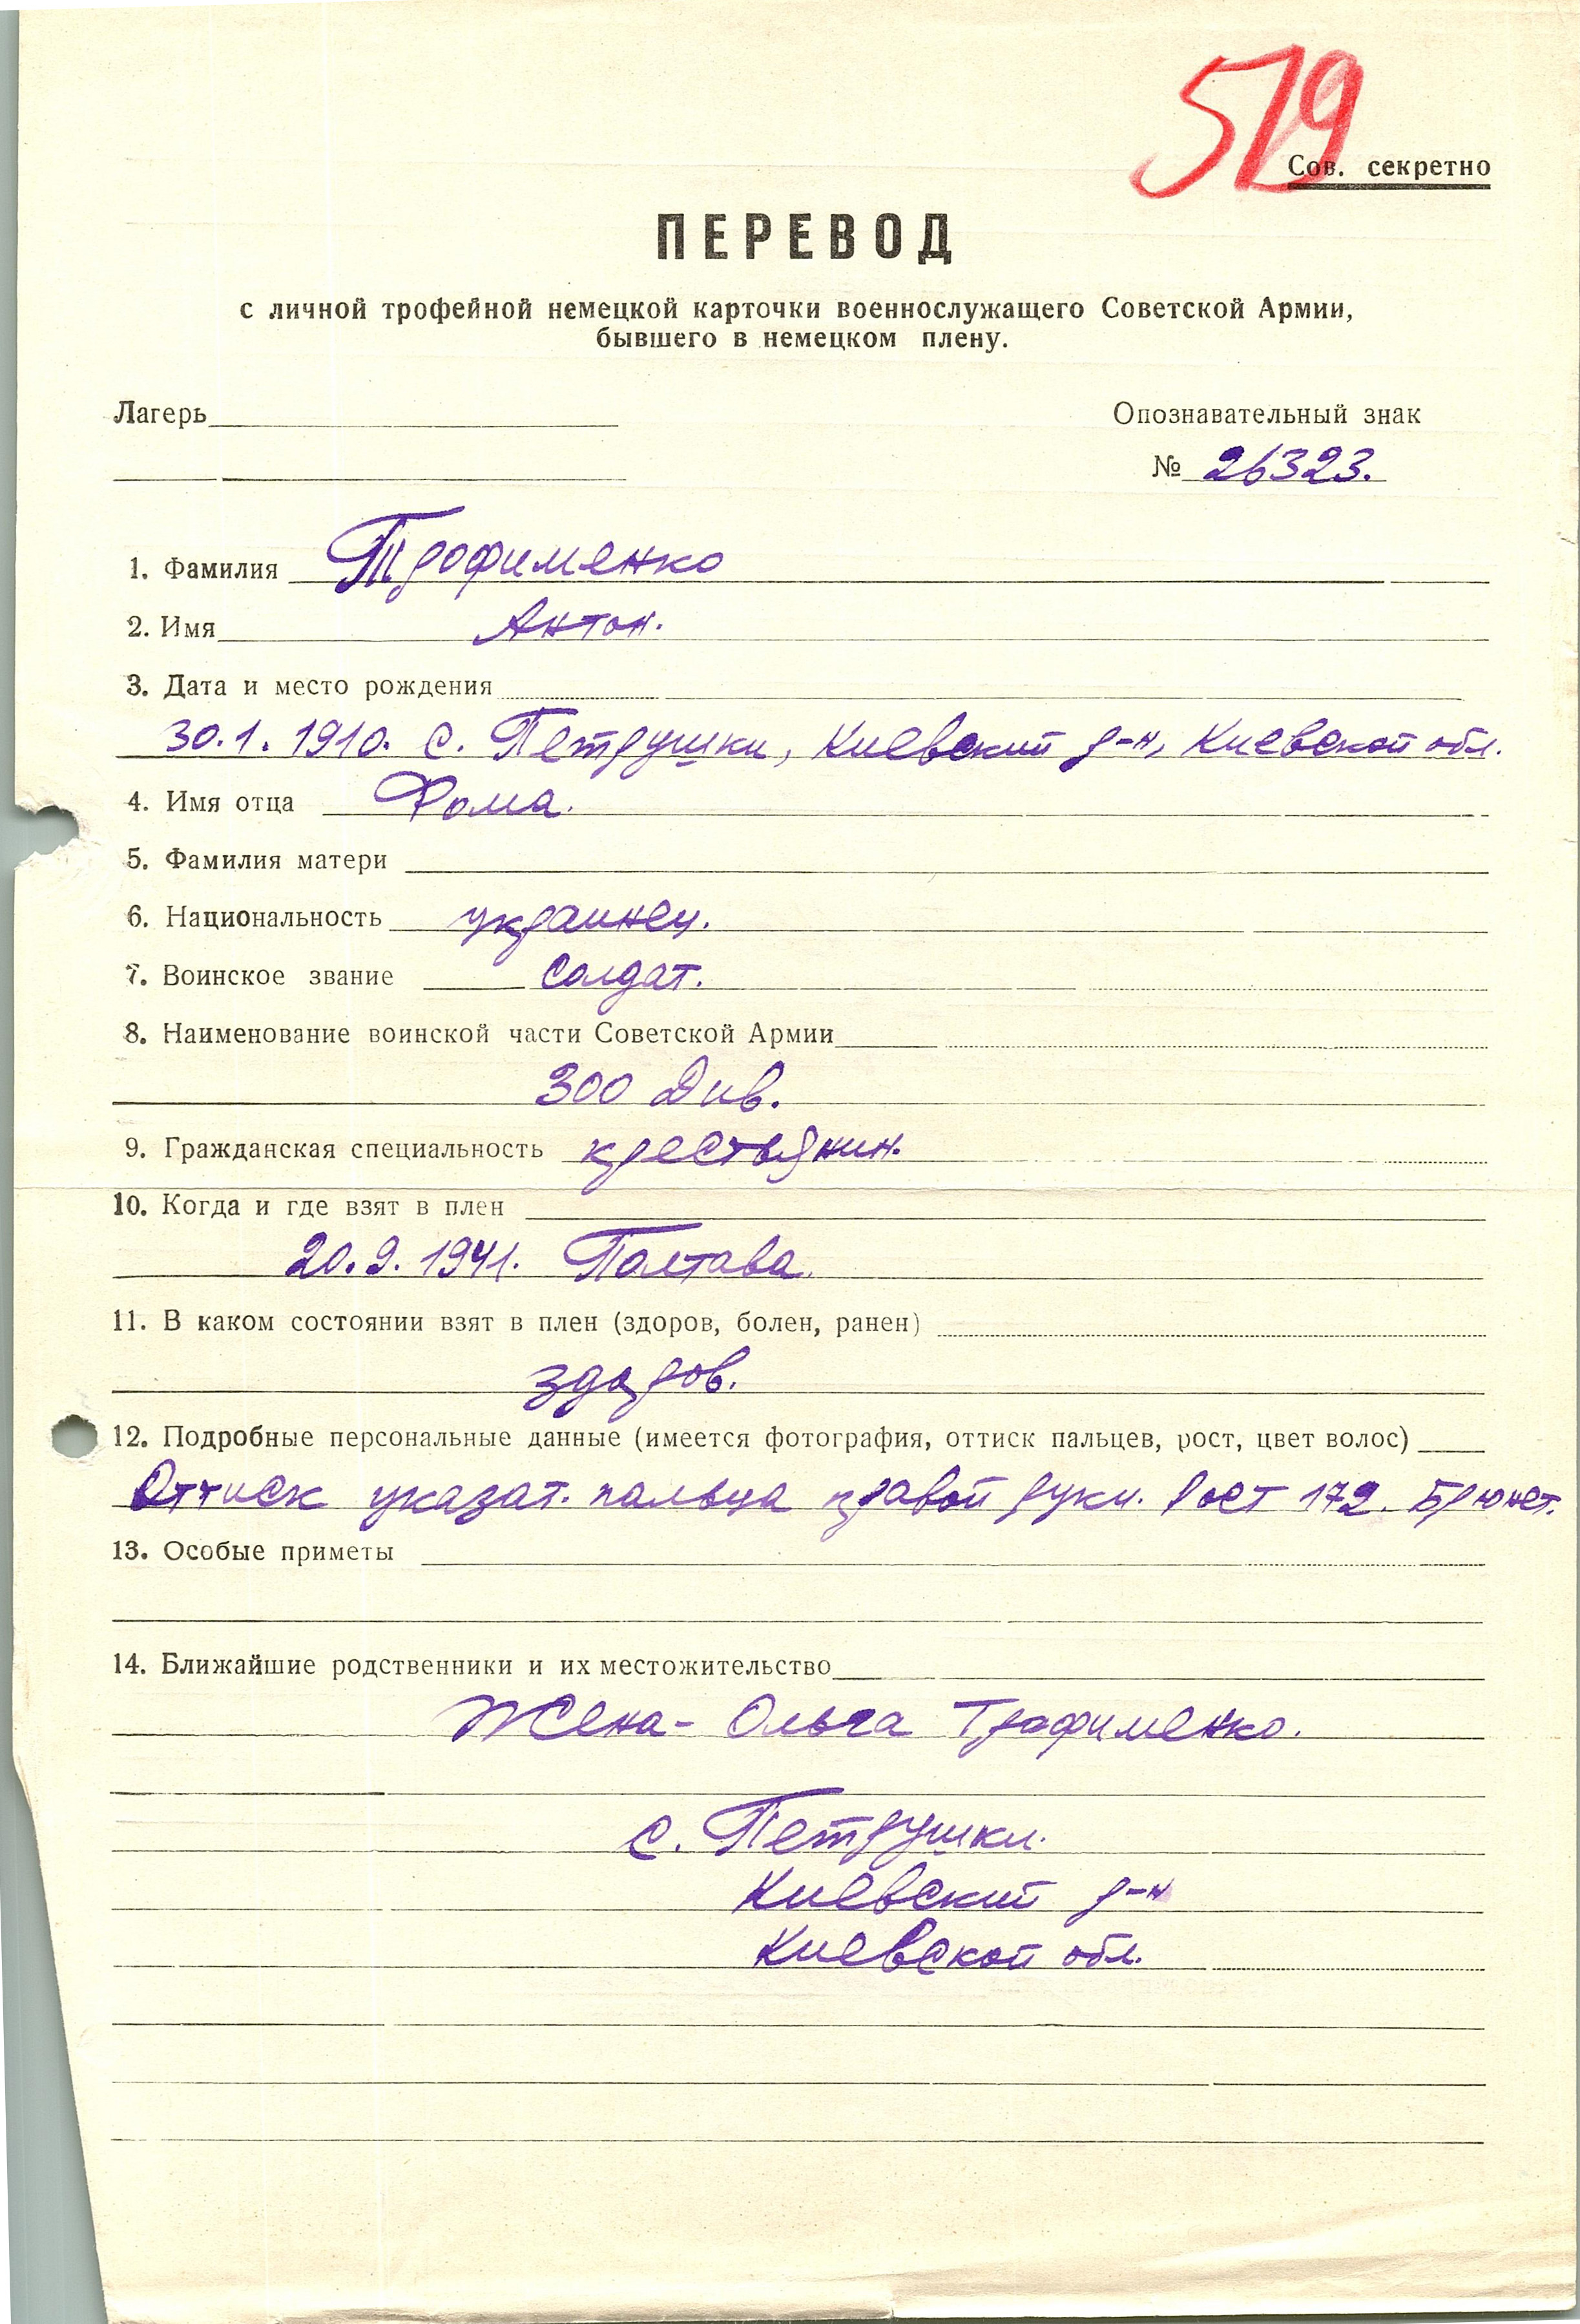 579
Сов. секретно
ПЕРЕВОД
с личной трофейной немецкой карточки военнослужащего Советской Армии,
бывшего в немецком плену.
Лагерь
Опознавательный знак
№ 26323.
1. Фамилия Трофименко
2. Имя Антон.
3. Дата и место рождения
30.1.1910. с. Петрушки, Киевский р-н, Киевской обл.
4. Имя отца Фома.
5. Фамилия матери
6. Национальность украинец.
7. Воинское звание солдат.
8. Наименование воинской части Советской Армии
300 Див.
9. Гражданская специальность крестьянин.
10. Когда и где взят в плен
20.9.1941. Полтава.
11. В каком состоянии взят в плен (здоров, болен, ранен)
здоров.
12. Подробные персональные данные (имеется фотография, оттиск пальцев, рост, цвет волос)
Оттиск указат. пальца правой руки. Рост 172. Брюнет.
13. Особые приметы
14. Ближайшие родственники и их местожительство
Жена - Ольга Трофименко.
с. Петрушки.
Киевский р-н
Киевской обл.